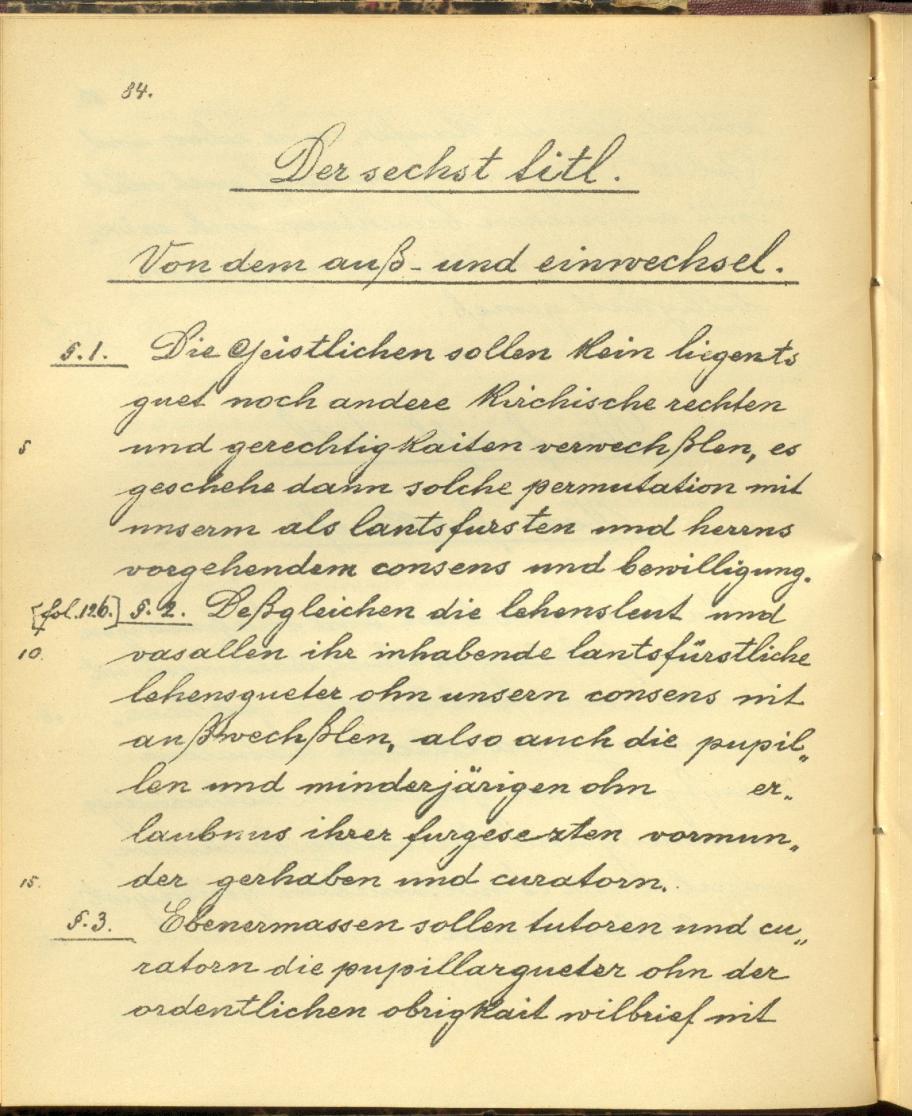 84.
Der sechst titl.
Von dem auß- und einwechsel.
§.1. Die Geistlichen sollen kein liegents
guet noch andere kirchische rechten
5 und gerechtigkaiten verwechßlen, es
geschehe dann solche permutation mit
unserm als lantsfursten und herrns
vorgehendem consens und bewilligung.
[fol.126.] §.2. Deßgleichen die lehensleut und
10. vasallen ihr inhabende lantsfürstliche
lehensgueter ohn unsern consens nit
außwechßlen, also auch die pupil„
len und minderjärigen ohn er„
laubnus ihrer furgesezten vormun„
15. der gerhaben und curatorn.
§.3. Ebenermassen sollen tutoren und cu„
ratorn die pupillargueter ohn der
ordentlichen obrigkait wilbrief nit